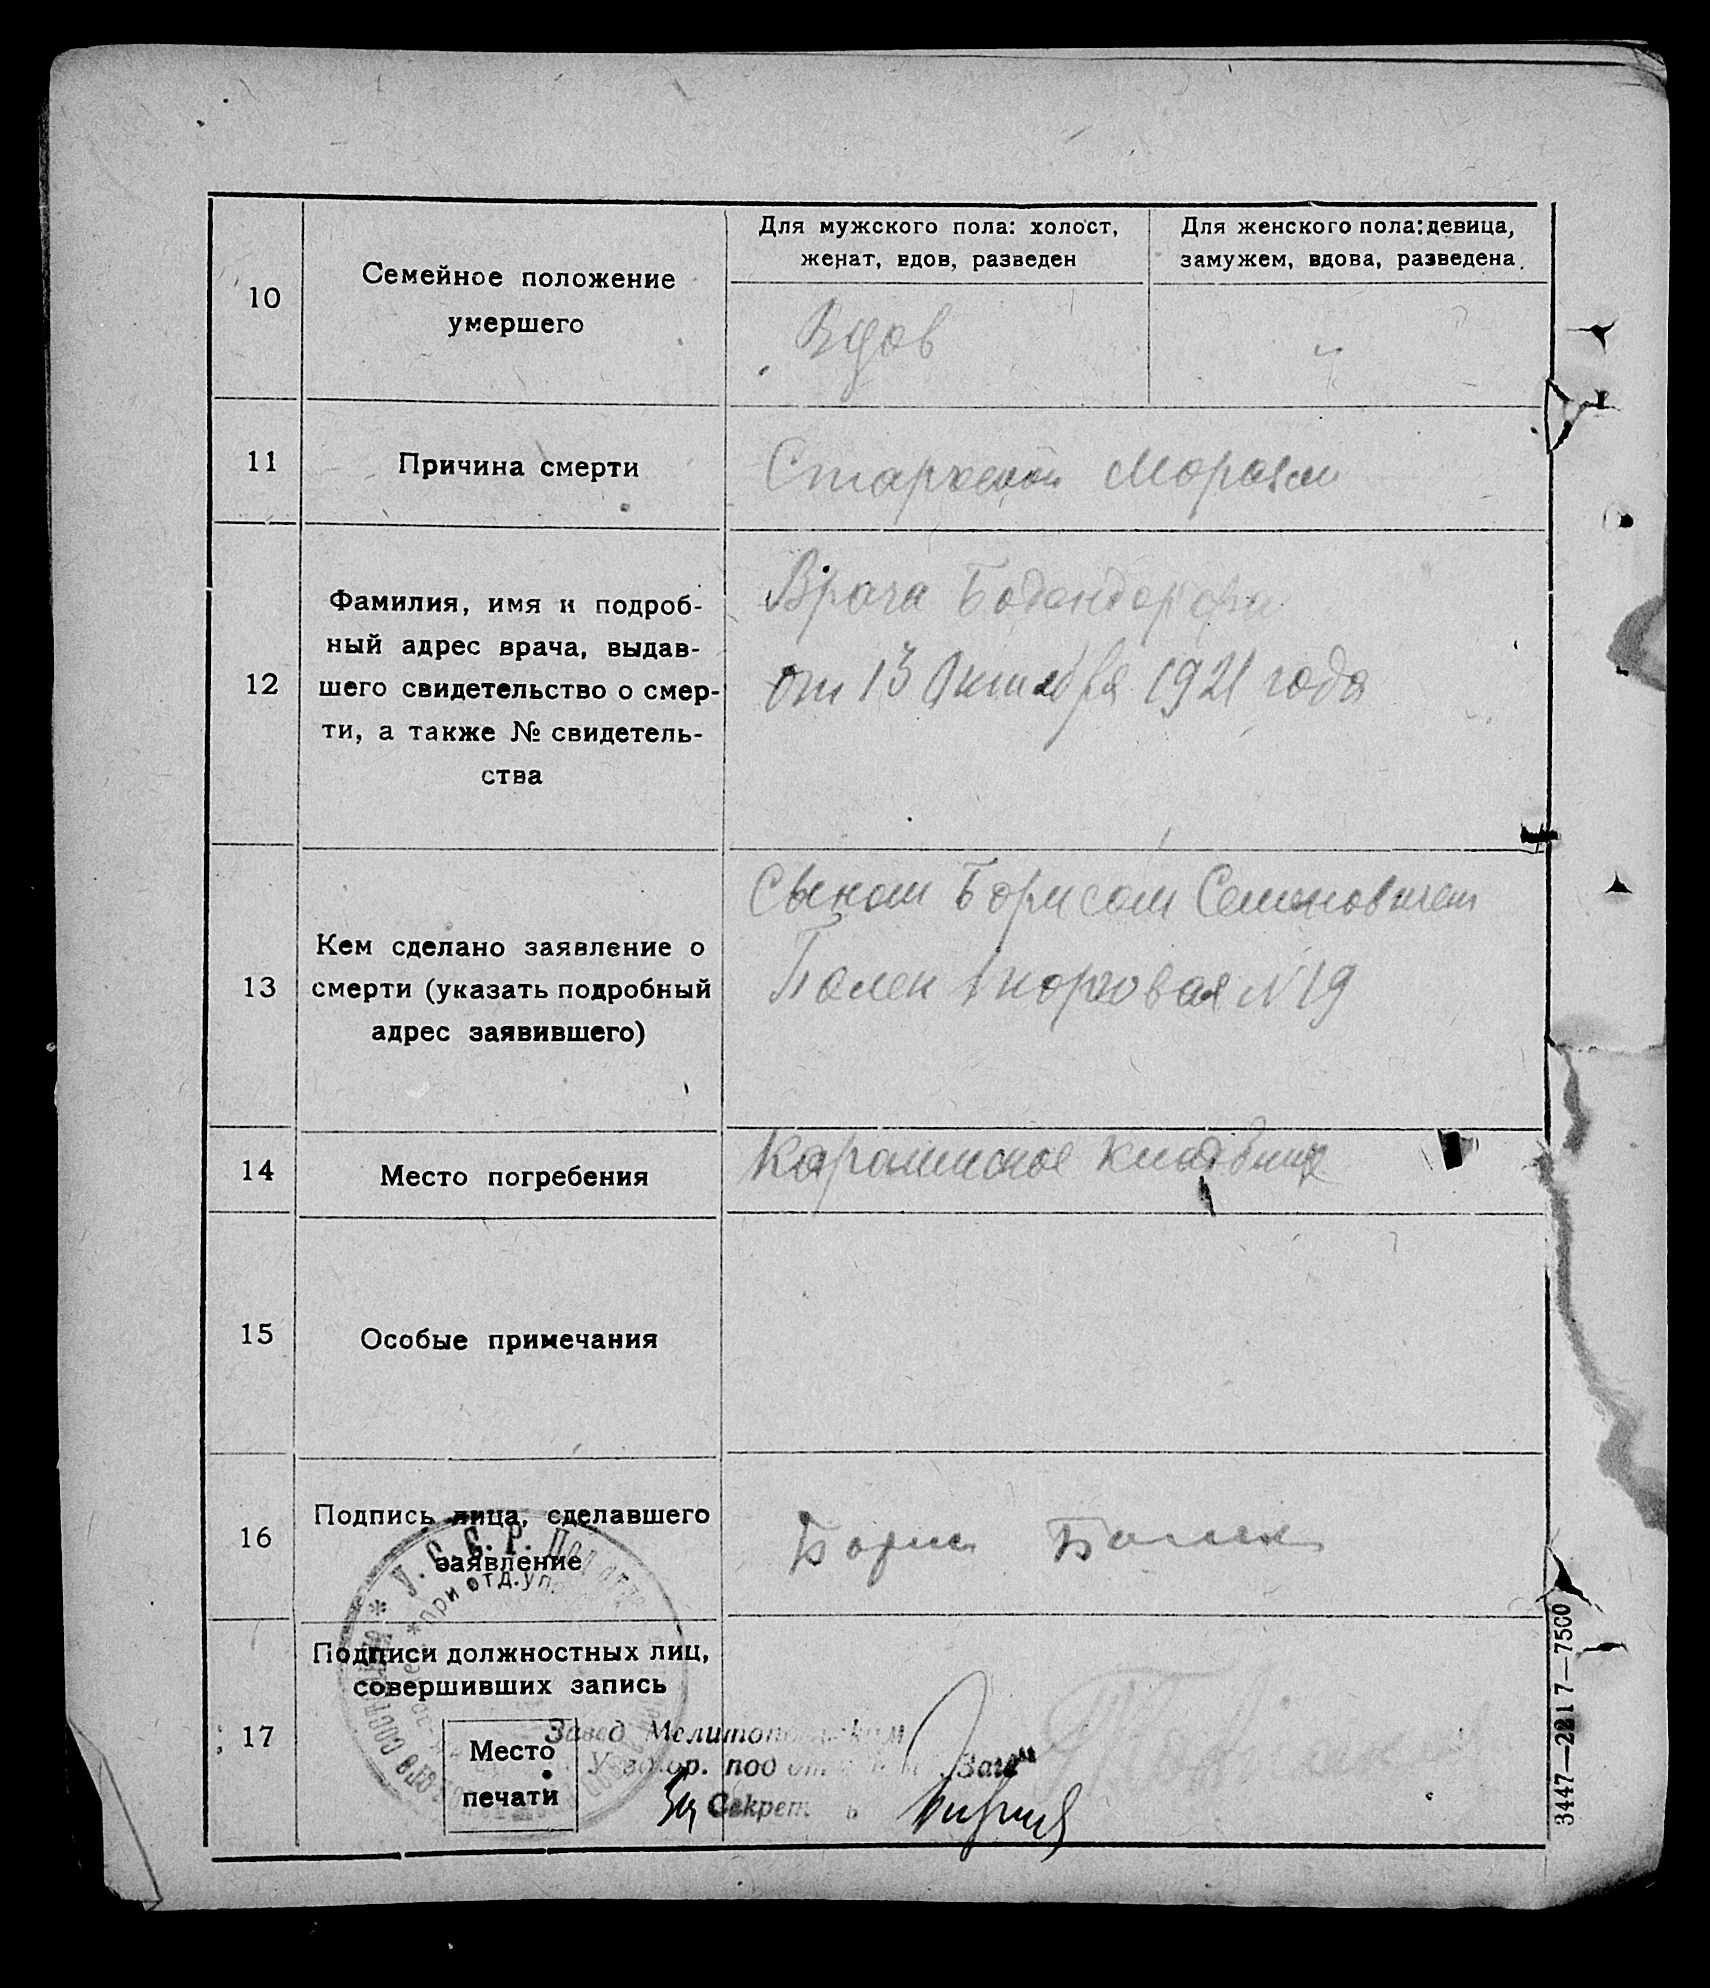 10
Семейное положение
умершего
Для мужского пола: холост,
женат, вдов, разведен
Для женского пола: девица,
замужем, вдова, разведена.
Вдов
"
11
Причина смерти
Старческой
12
Фамилия, имя и подроб-
ный адрес врача, выдав-
шего свидетельство о смер-
ти, а также № свидетель-
ства
Врача Бодендорфа
от 13 Октября 1921 года
13
Кем сделано заявление о
смерти (указать подробный
адрес заявившего)
Сыном Борисом Семеновичем
№ 19
14
Место погребения
Караимское
15
Особые примечания
16
Подпись лица, сделавшего
заявление
Борис
17
Подписи должностных лиц,
совершивших запись
Место
печати
У. С. С. Р. Подотде
при отд. уп
Завед Мелитопольским
"Загс"
За Секрет
3447—2217—7500